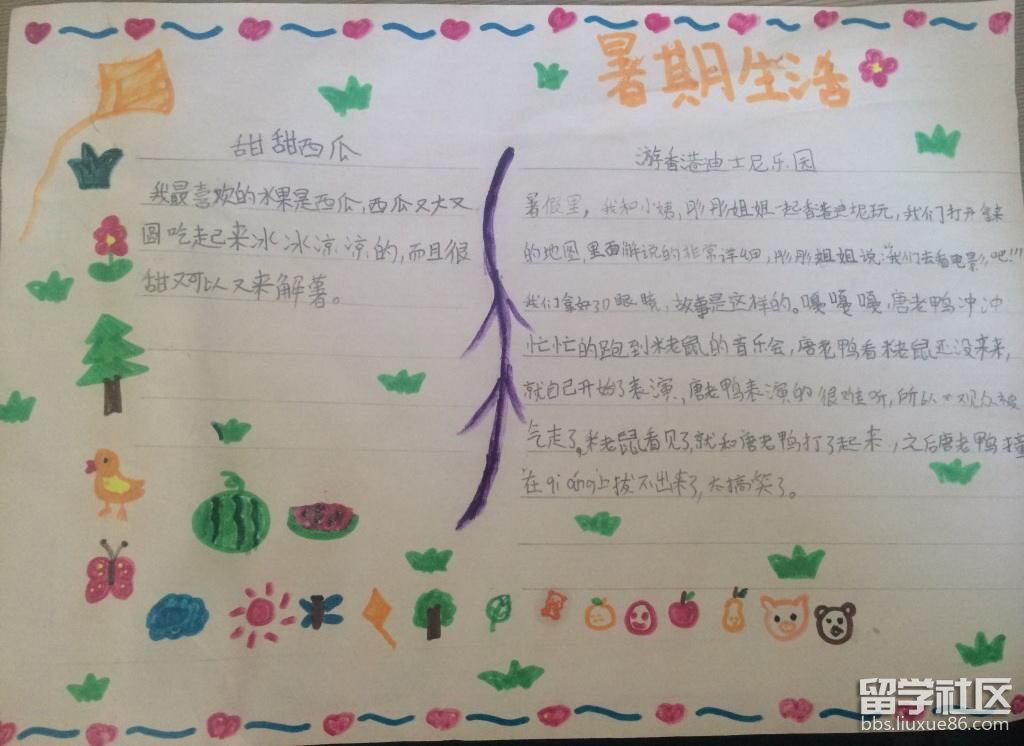 暑期生活
甜甜西瓜
我最喜欢的水果是西瓜,西瓜又大又
圆吃起来冰冰凉凉的,而且很
甜又可以又来解暑。
游香港迪士尼乐园
暑假里,我和小姨,彤彤姐姐一起香港迪尼玩,我们打开
的地图,里面解说的非常详细,彤彤姐姐说:“我们去看电影吧!!!”
我们拿好3D眼镜,故事是这样的。嘎嘎嘎,唐老鸭冲冲
忙忙的跑到米老鼠的音乐会,唐老鸭看米老鼠还没来,
就自己开始了表演,唐老鸭表演的很难听,所以观众被
气走了。米老鼠看见了就和唐老鸭打了起来,之后唐老鸭撞
在qiáng上拔不出来了,太搞笑了。
留学社区
bbs.liuxue86.com